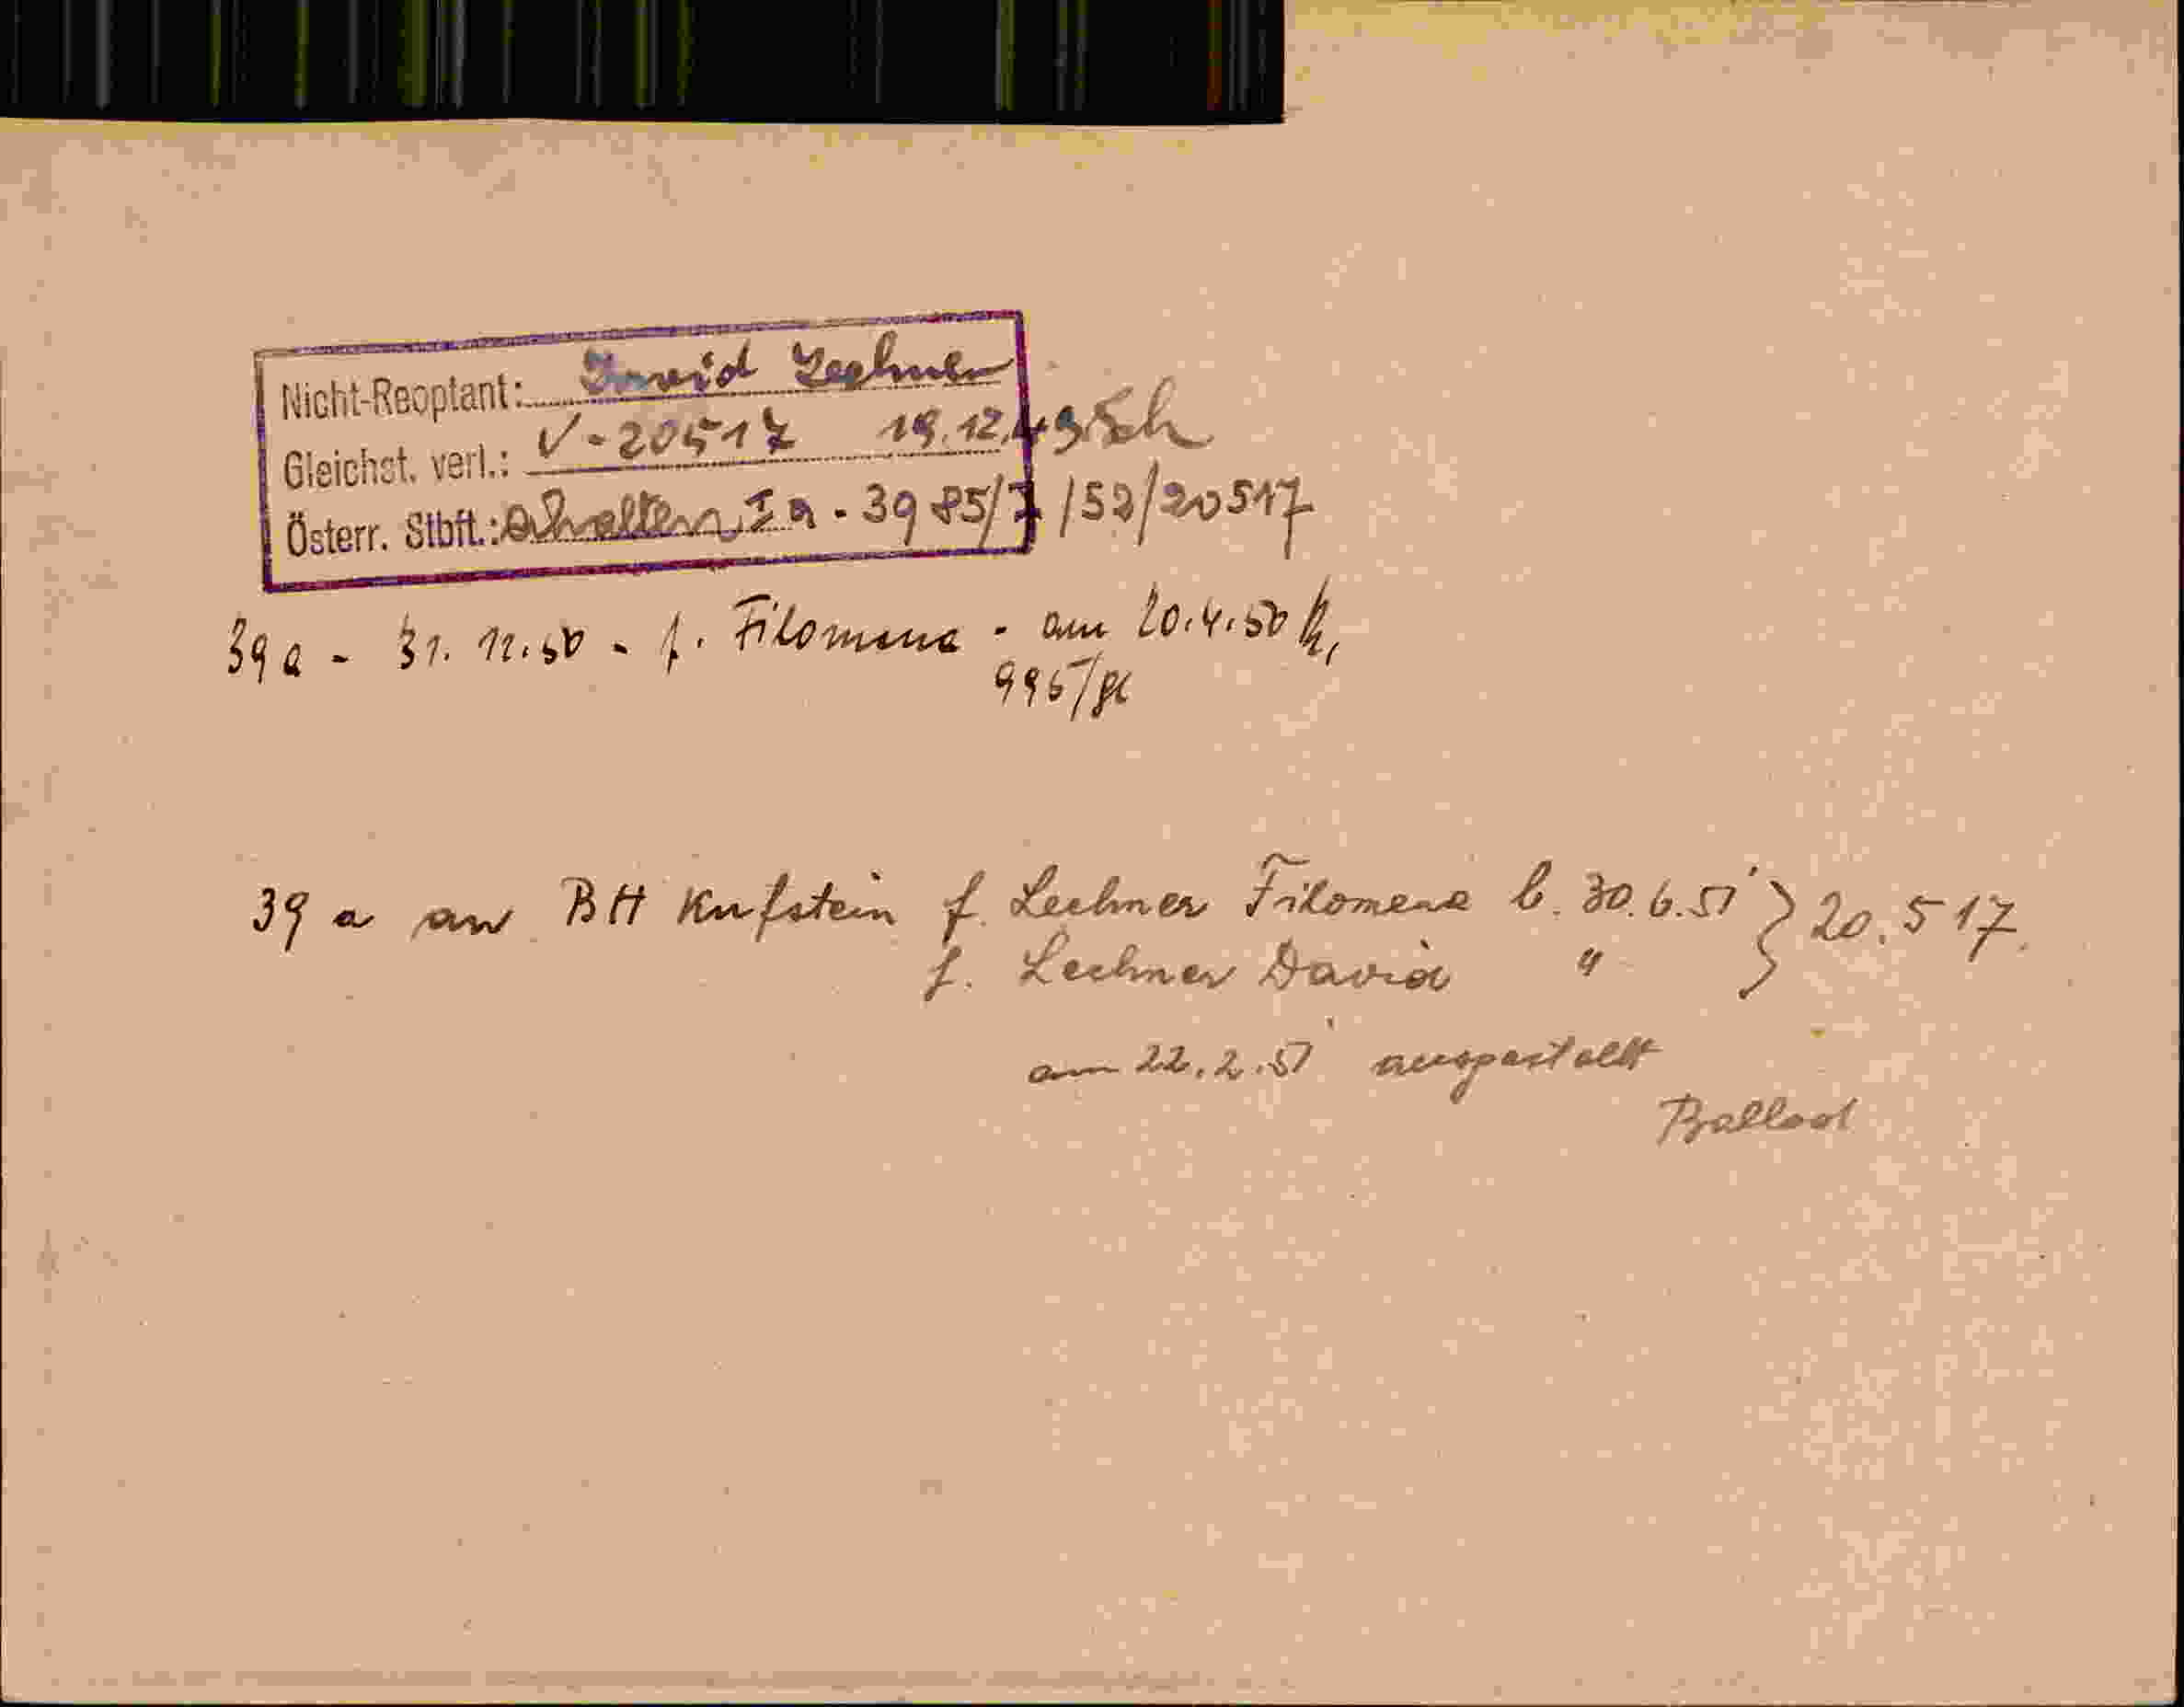 Nicht-Reoptant: David Lechner
Gleichst. verl.: V-20517 19.12.49 Sch
Österr. Stbft.: erhalten Ia-3985/7/52/20517
39a - 31.12.50 - f. Filomena - am 20.4.50
995/gl
39a an BH Kufstein f. Lechner Filomena b. 30.6.51 } 20.517.
f. Lechner David "
am 22.2.51 ausgestellt